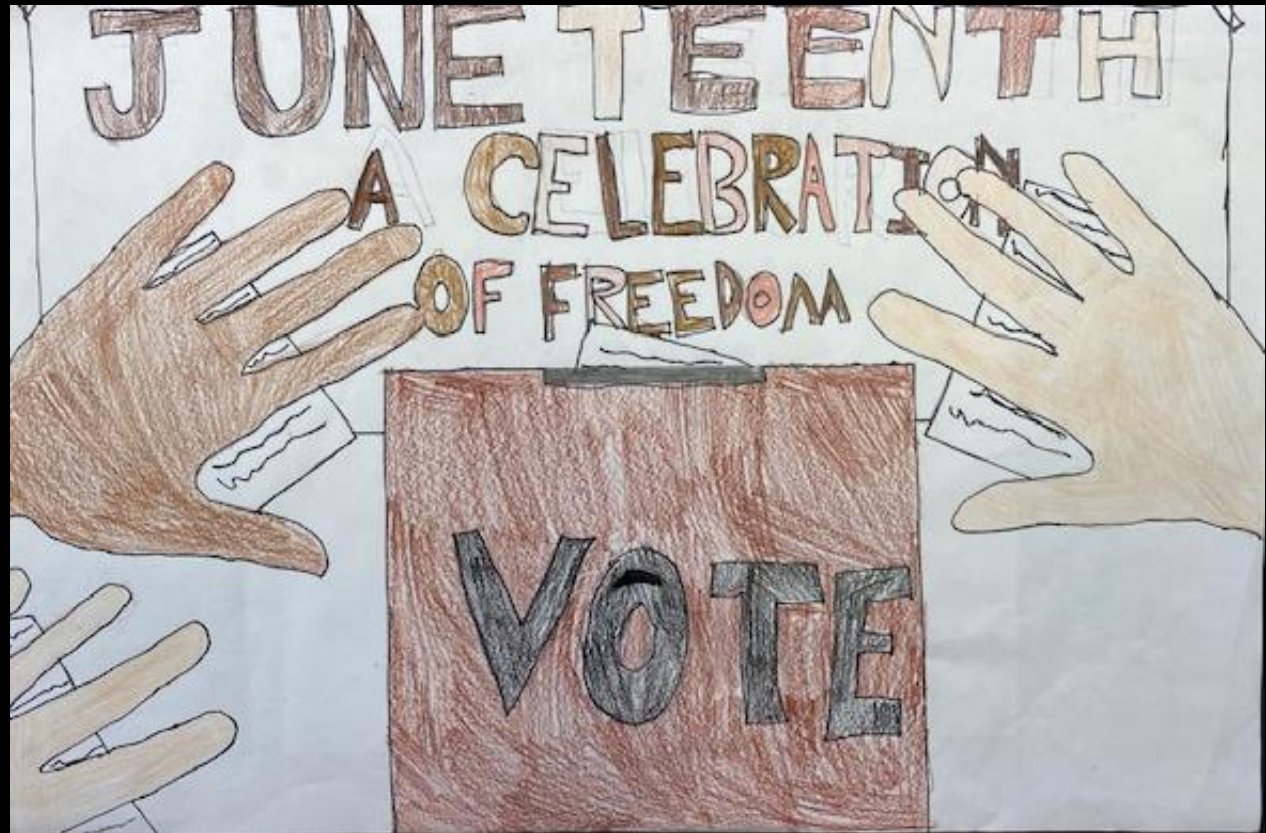 JUNETEENTH
A CELEBRATION
OF FREEDOM
VOTE